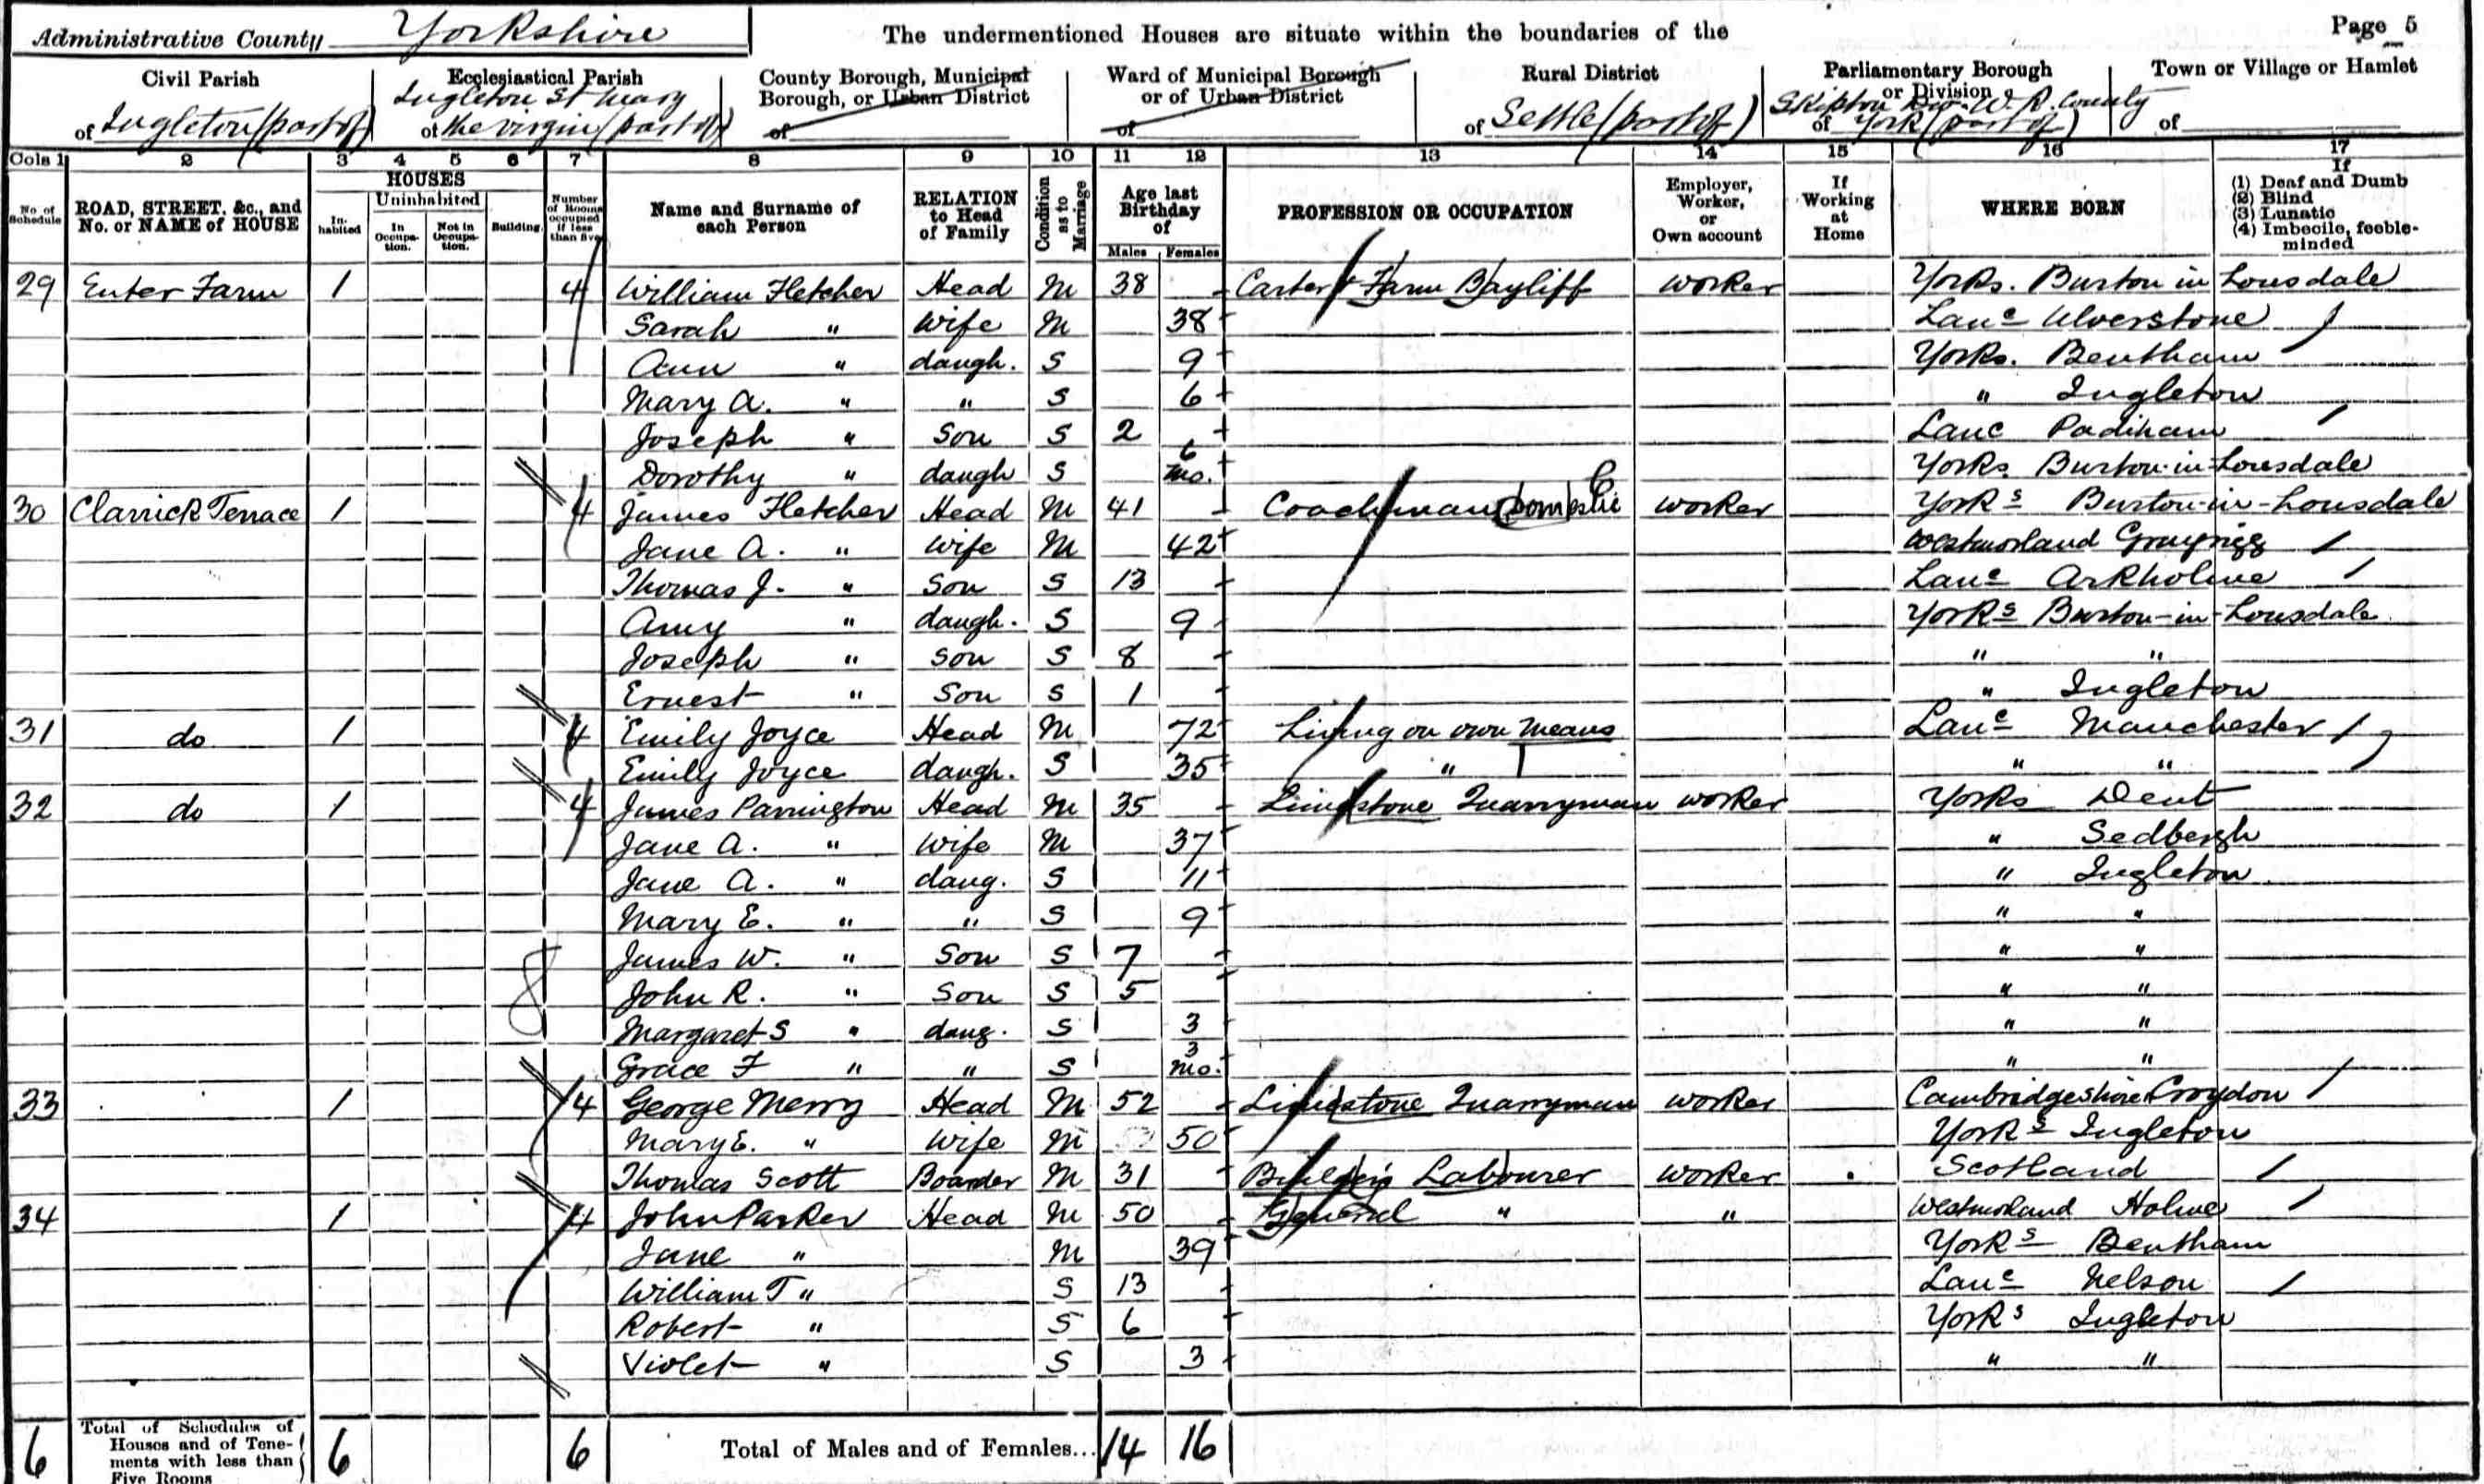 Administrative County Yorkshire The undermentioned Houses are situate within the boundaries of the Page 5
Civil Parish of Ingleton (part of)
Ecclesiastical Parish of Ingleton St Mary the virgin (part of)
County Borough, Municipal Borough, or Urban District of
Ward of Municipal Borough or of Urban District of
Rural District of Settle (part of)
Parliamentary Borough or Division of Skipton Div. W. R. County York (part of)
Town or Village or Hamlet of
Cols 1 2 3 4 5 6 7 8 9 10 11 12 13 14 15 16 17
No of Schedule
ROAD, STREET, &c., and No. or NAME of HOUSE
HOUSES
Inhabited
Uninhabited
In Occupation.
Not in Occupation.
Building
Number of Rooms occupied if less than five
Name and Surname of each Person
RELATION to Head of Family
Condition as to Marriage
Age last Birthday of
Males Females
PROFESSION OR OCCUPATION
Employer, Worker, or Own account
If Working at Home
WHERE BORN
If
(1) Deaf and Dumb
(2) Blind
(3) Lunatic
(4) Imbecile, feeble-minded
29 Enter Farm 1 4 William Fletcher Head M 38 Carter & Farm Bayliff worker Yorks. Burton in Lonsdale
Sarah " Wife M 38 Lanc Ulverstone
Ann " daugh. S 9 Yorks. Bentham
Mary A. " " S 6 " Ingleton
Joseph " Son S 2 Lanc Padiham
Dorothy " daugh S 6 mo. Yorks. Burton-in-Lonsdale
30 Clarrick Terrace 1 4 James Fletcher Head M 41 Coachman Domestic worker Yorks Burton-in-Lonsdale
Jane A. " Wife M 42 Westmorland Grayrigg
Thomas J. " Son S 13 Lanc Arkholme
Amy " daugh. S 9 Yorks Burton-in-Lonsdale
Joseph " Son S 8 " "
Ernest " Son S 1 " Ingleton
31 do 1 4 Emily Joyce Head M 72 Living on own means Lanc Manchester
Emily Joyce daugh. S 35 " " "
32 do 1 4 James Parrington Head M 35 Limestone Quarryman worker Yorks Dent
Jane A. " Wife M 37 " Sedbergh
Jane A. " daug. S 11 " Ingleton
Mary E. " " S 9 " "
James W. " Son S 7 " "
John R. " Son S 5 " "
Margaret S " daug. S 3 " "
Grace F " " S 3 mo. " "
33 1 4 George Merry Head M 52 Limestone Quarryman worker Cambridgeshire Croydon
Mary E. " Wife M 50 Yorks Ingleton
Thomas Scott Boarder M 31 Builder's Labourer worker Scotland
34 1 4 John Parker Head M 50 General " " Westmorland Holme
Jane " M 39 Yorks Bentham
William T " S 13 Lanc Nelson
Robert " S 6 Yorks Ingleton
Violet " S 3 " "
6 Total of Schedules of Houses and of Tenements with less than Five Rooms 6 6 Total of Males and of Females... 14 16